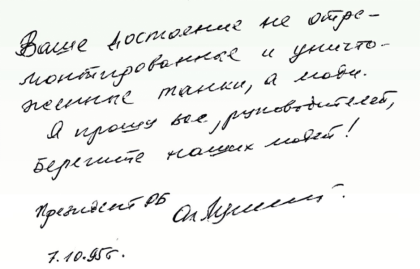 Ваше достояние не отре-
монтированные и уничто-
женные танки, а люди.
Я прошу вас, руководителей,
берегите наших людей!
Президент РБ
7.10.95г.